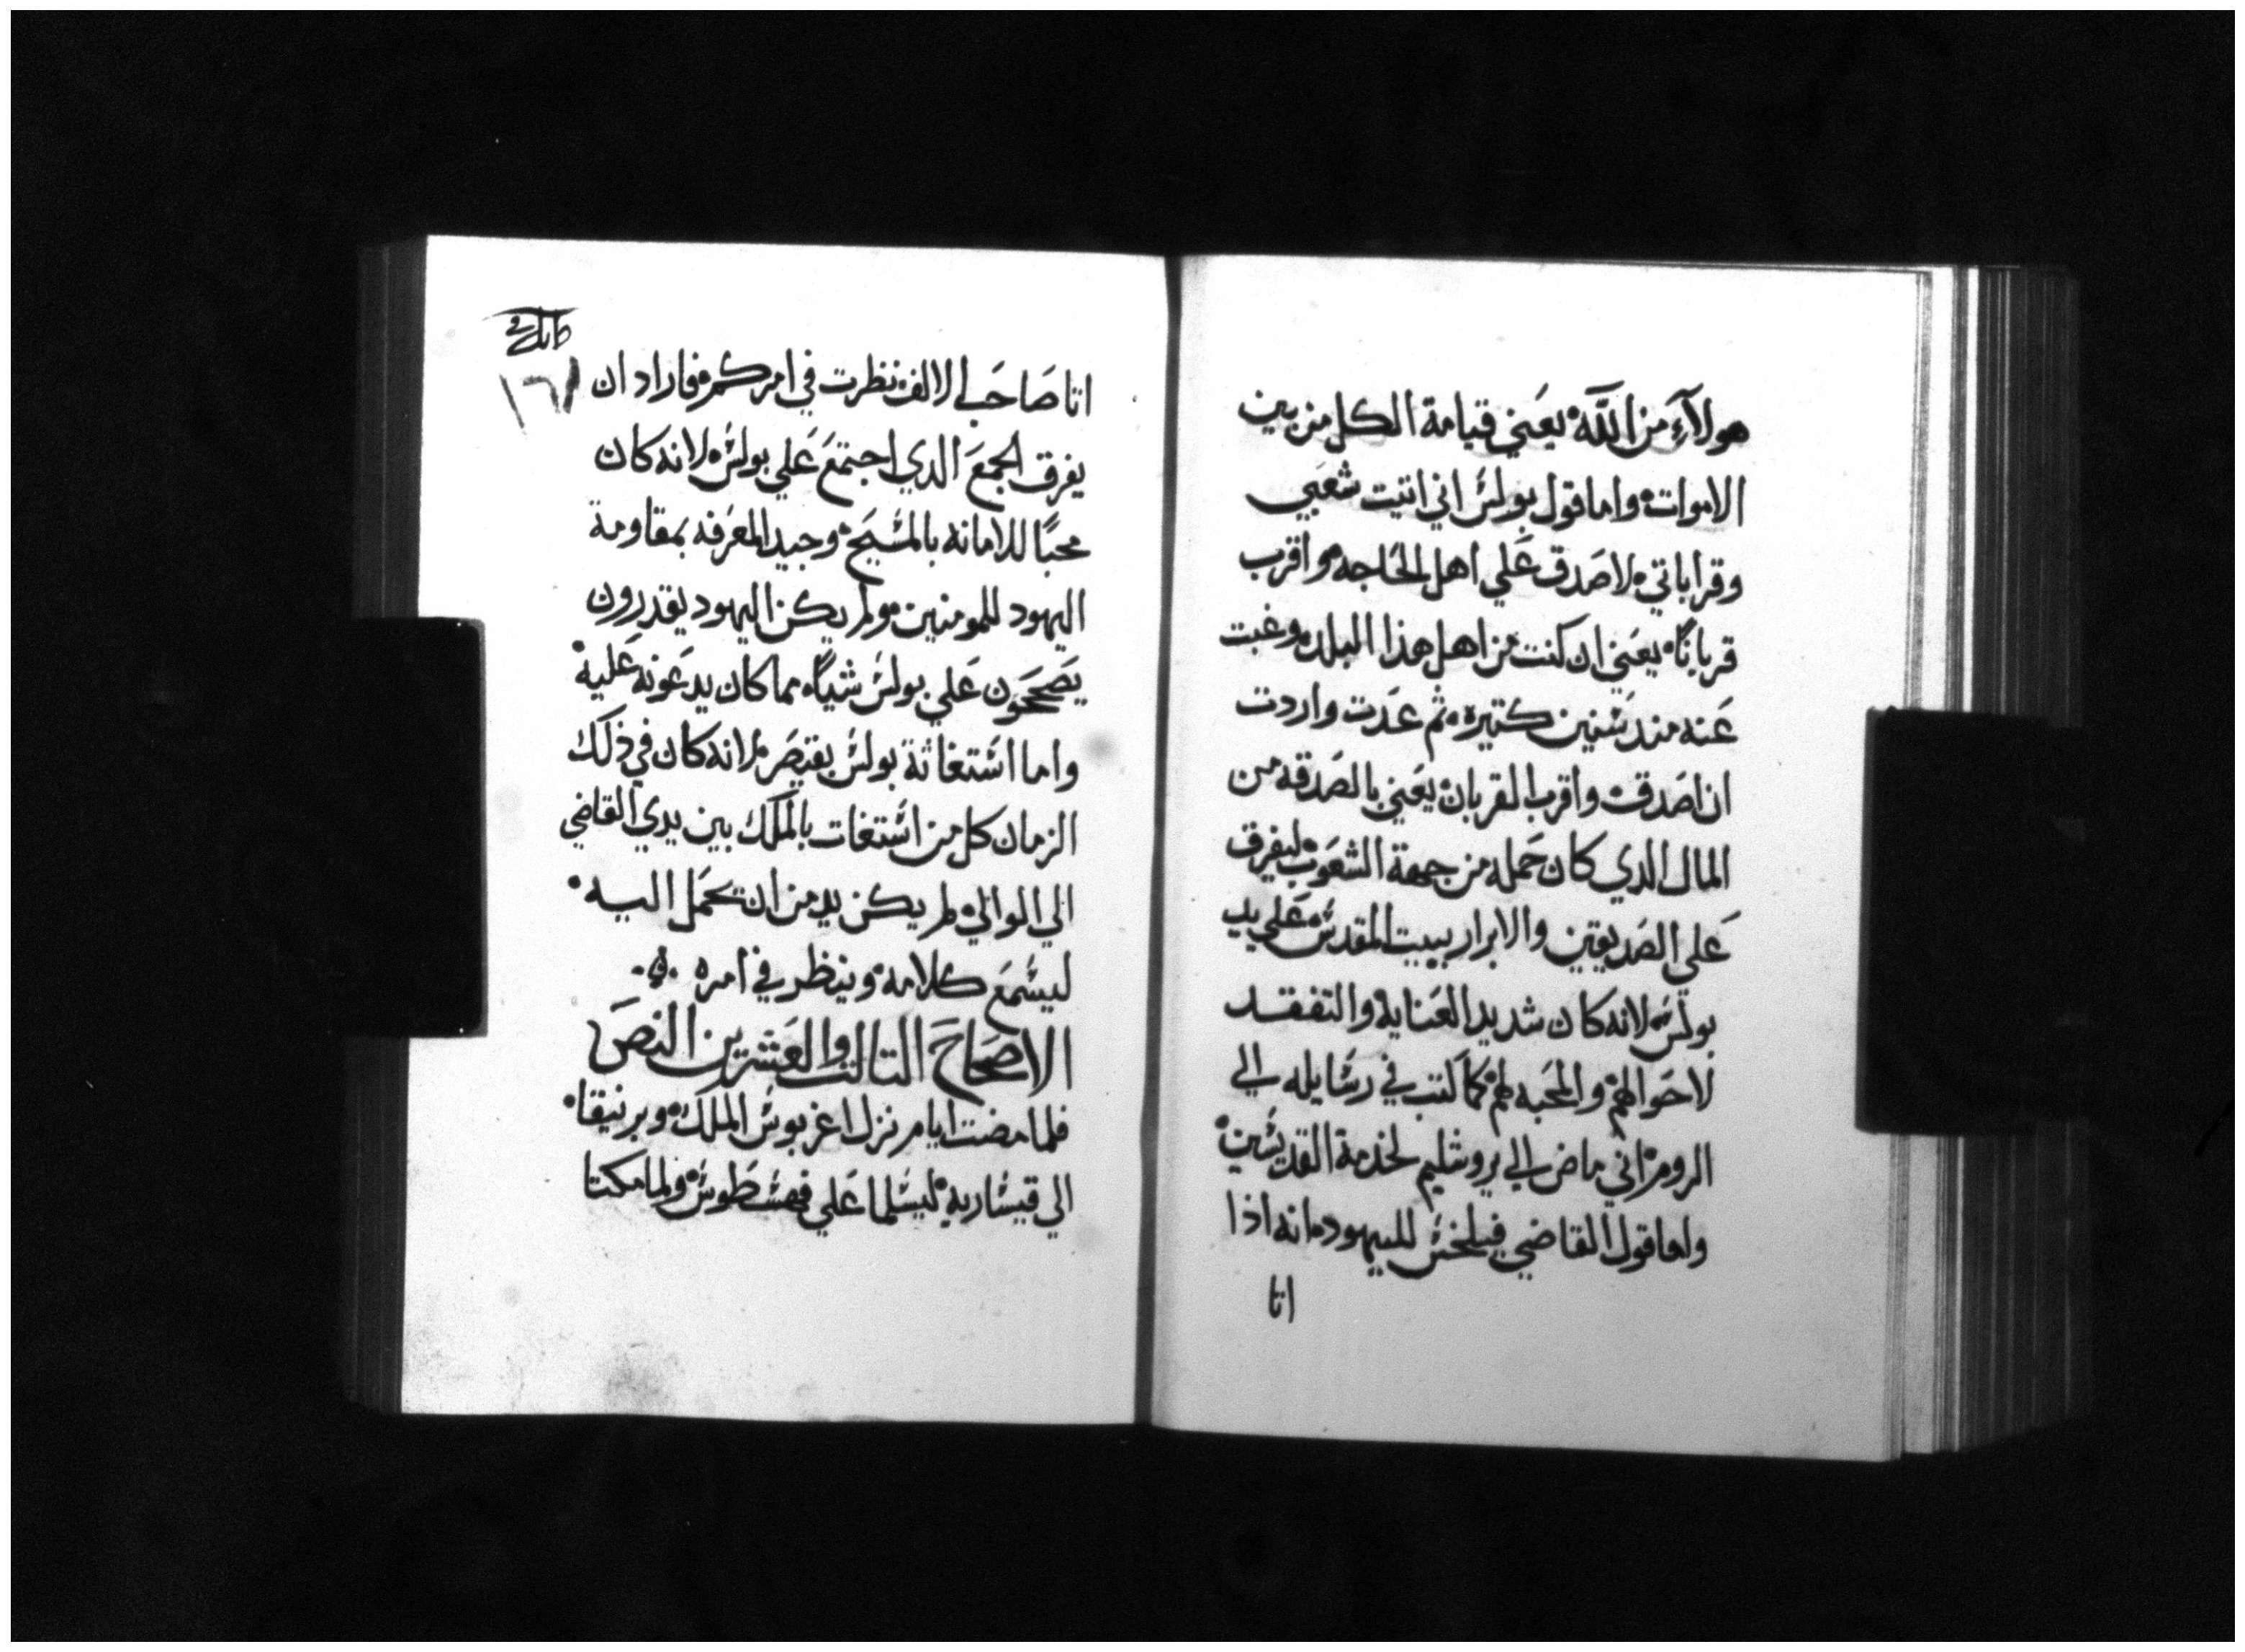 هولآءِ من اللَّه يعَني قيامة الكل من بين
الاموات واما قول بولسَ اني اتيت شعَبي
وقراباتي لاصَدق عَلي اهل الحَاجه واقرب
قربانًا يعَني ان كنت من اهل هذا البلد وغبت
عَنه مند سَنين كتيره ثم عَدت واردت
ان اصَدق واقرب القربان يعَني بالصَدقه من
المال الدي كان حَمله من جهة الشعَوب ليفرق
عَلي الصَديقين والابرار ببيت المقدسَ عَلي يد
بولسَ لانه كان شديد العَناية والتفقد
لاحَوالهم والمحَبه لهم كما كتب في رسَايله الي
الروم اني ماض الي يروشليم لخدمة القديسَين
واما قول القاضي فيلخسَ لليهود انه اذا
اتا
اتا صَاحَب الالف نظرت في امركم فاراد ان
يفرق الجمعَ الدي اجتمعَ عَلي بولسَ لانه كان
محبًا للامانه بالمسَيحَ وجيد المعَرفه بمقاومة
اليهود للمومنين ولم يكن اليهود يقدرون
يصَححَون عَلي بولسَ شياً مما كان يدعَونه عَليه
واما اسَتغاثة بولسَ بقيصَر لانه كان في ذلك
الزمان كل من اسَتغات بالملك بين يدي القاضي
الي الوالي لم يكن بد من ان يحَمل اليه
ليسَمعَ كلامه وينظر في امره
الاصَحَاحَ التالت والعَشرين النصَ
فلما مضت ايام نزل اغربوسَ الملك وبرنيقا
الي قيسَاريه ليسَلما عَلي فهسَطوسَ ولما مكتا